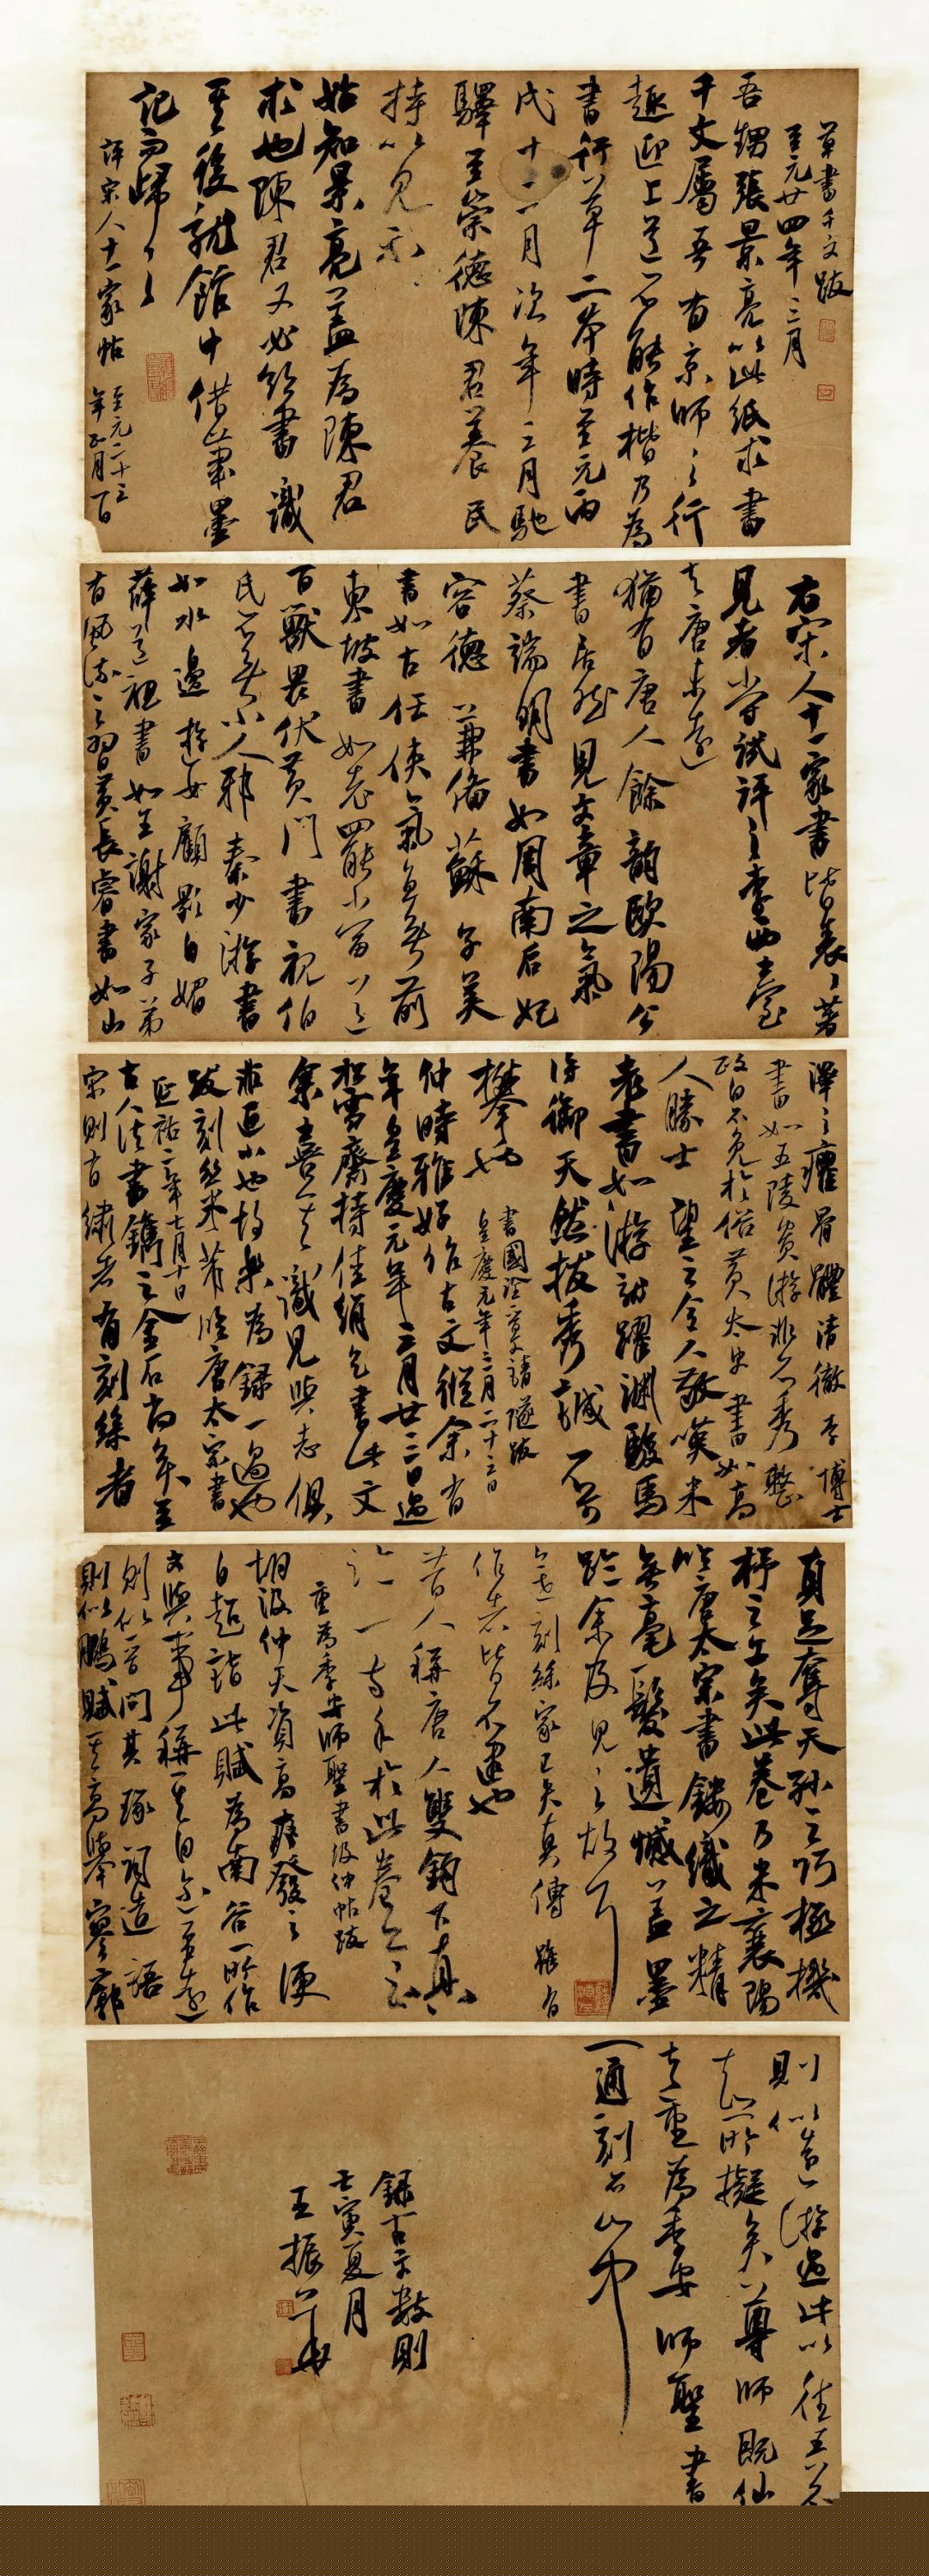 草書千文跋
至元廿四年三月
吾甥張景亮以此紙求書
千文屬吾有京師之行
趣迎上道不能作楷乃為
書行草二本時至元丙
戌十二月次年三月馳
驛至崇德陳君養民
持以見示
姑知景亮蓋為陳君
求也陳君又必欲書識
其後就館中借筆墨
記而歸之
評宋人十一家帖
至元二十三
年正月一日
右宋人十一家書皆表表著
見者嘗試評之李西臺
去唐未遠
猶有唐人餘韻歐陽公
書居然見文章之氣
蔡端明書如周南后妃
容德兼備蘇子美
書如古任俠氣直無前
東坡書如老羆當道
百獸畏伏黃門書視伯
氏不無小人邪秦少游書
如水邊游女顧影自媚
薛道祖書如王謝家子弟
有風流之習黃長睿書如山
澤之癯骨體清澈李博士
書如五陵貴游非不秀整
政自不免於俗黃太史書如高
人勝士望之令人敬嘆米
老書如游龍躍淵駿馬
得御天然拔秀誠不可
攀也
書國詮章請遂跋
皇慶元年三月二十三日
仲時雅好作古文從余有
年皇慶元年三月廿三日過
松雪齋持佳絹乞書此文
余喜其識見與志俱
非區小也故樂為錄一過也
跋刻絲米芾臨唐太宗書
延祐二年七月十日
古人法書鐫之金石尚矣至
宋則有繡者有刻絲者
真足奪天孫之巧極機
杼之工矣此卷乃米襄陽
臨唐太宗書鏤織之精
無毫髮遺憾蓋墨
跡余及見之故耳
今世刻絲家已失真傳雖有
作者皆不逮也
昔人稱唐人雙鉤下真
跡一等於此卷亦云
重為季安師聖書汲仲帖跋
胡汲仲天資高爽發言便
自超詣此賦為南谷所作
文與事稱
則似晉問其琢詞造語
則似鵬賦其高舉寥廓
則似遠游過此以往吾不
知所擬矣尊師既仙
去重為季安師聖書
一通刻石山中
錄古文數則
壬寅夏月
王振